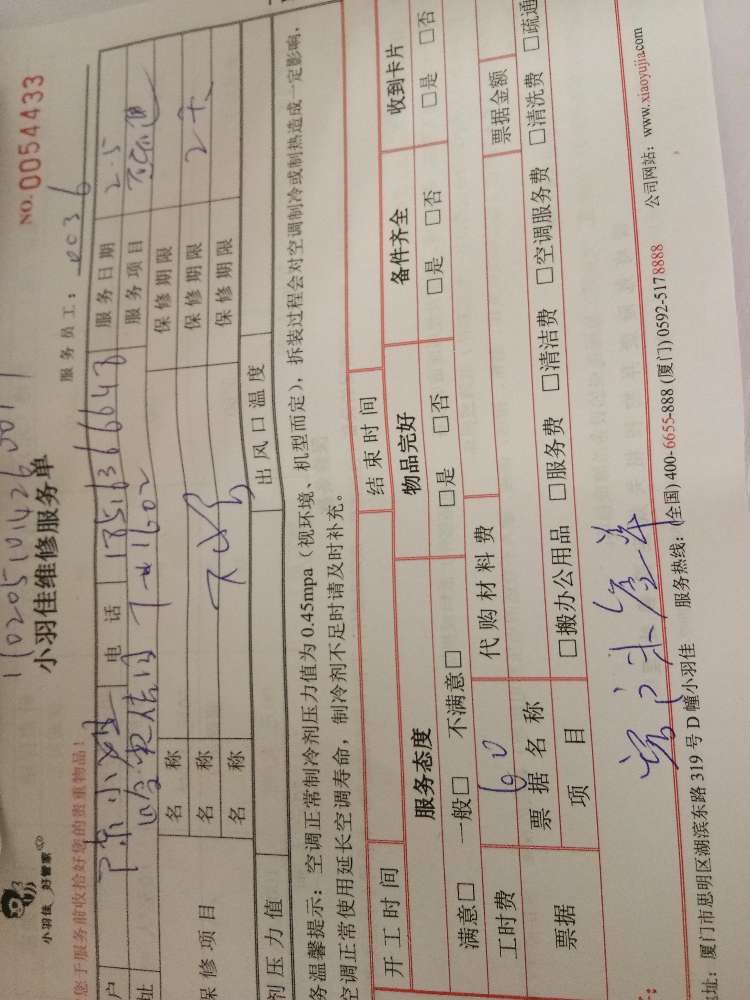 小羽佳 好管家
NO.0054433
小羽佳维修服务单
您于服务前收拾好您的贵重物品!
服务员工: 0036
户 电 话 服务日期 2.5
址 服务项目
保修项目
名 称 保修期限
名 称 保修期限 2天
名 称 保修期限
剂压力值 出风口温度
务温馨提示:空调正常制冷剂压力值为0.45mpa(视环境、机型而定),拆装过程会对空调制冷或制热造成一定影响,
空调正常使用延长空调寿命,制冷剂不足时请及时补充。
开工时间 结束时间
服务态度 物品完好 备件齐全 收到卡片
满意□ 一般□ 不满意□ □是 □否 □是 □否 □是 □否
工时费 60 代购材料费 票据金额
票据 票据名称
项 目 □搬办公用品 □服务费 □清洁费 □空调服务费 □清洗费 □疏通
地址:厦门市思明区湖滨东路319号D幢小羽佳 服务热线:(全国)400-6655-888(厦门)0592-5178888 公司网站:www.xiaoyujia.com